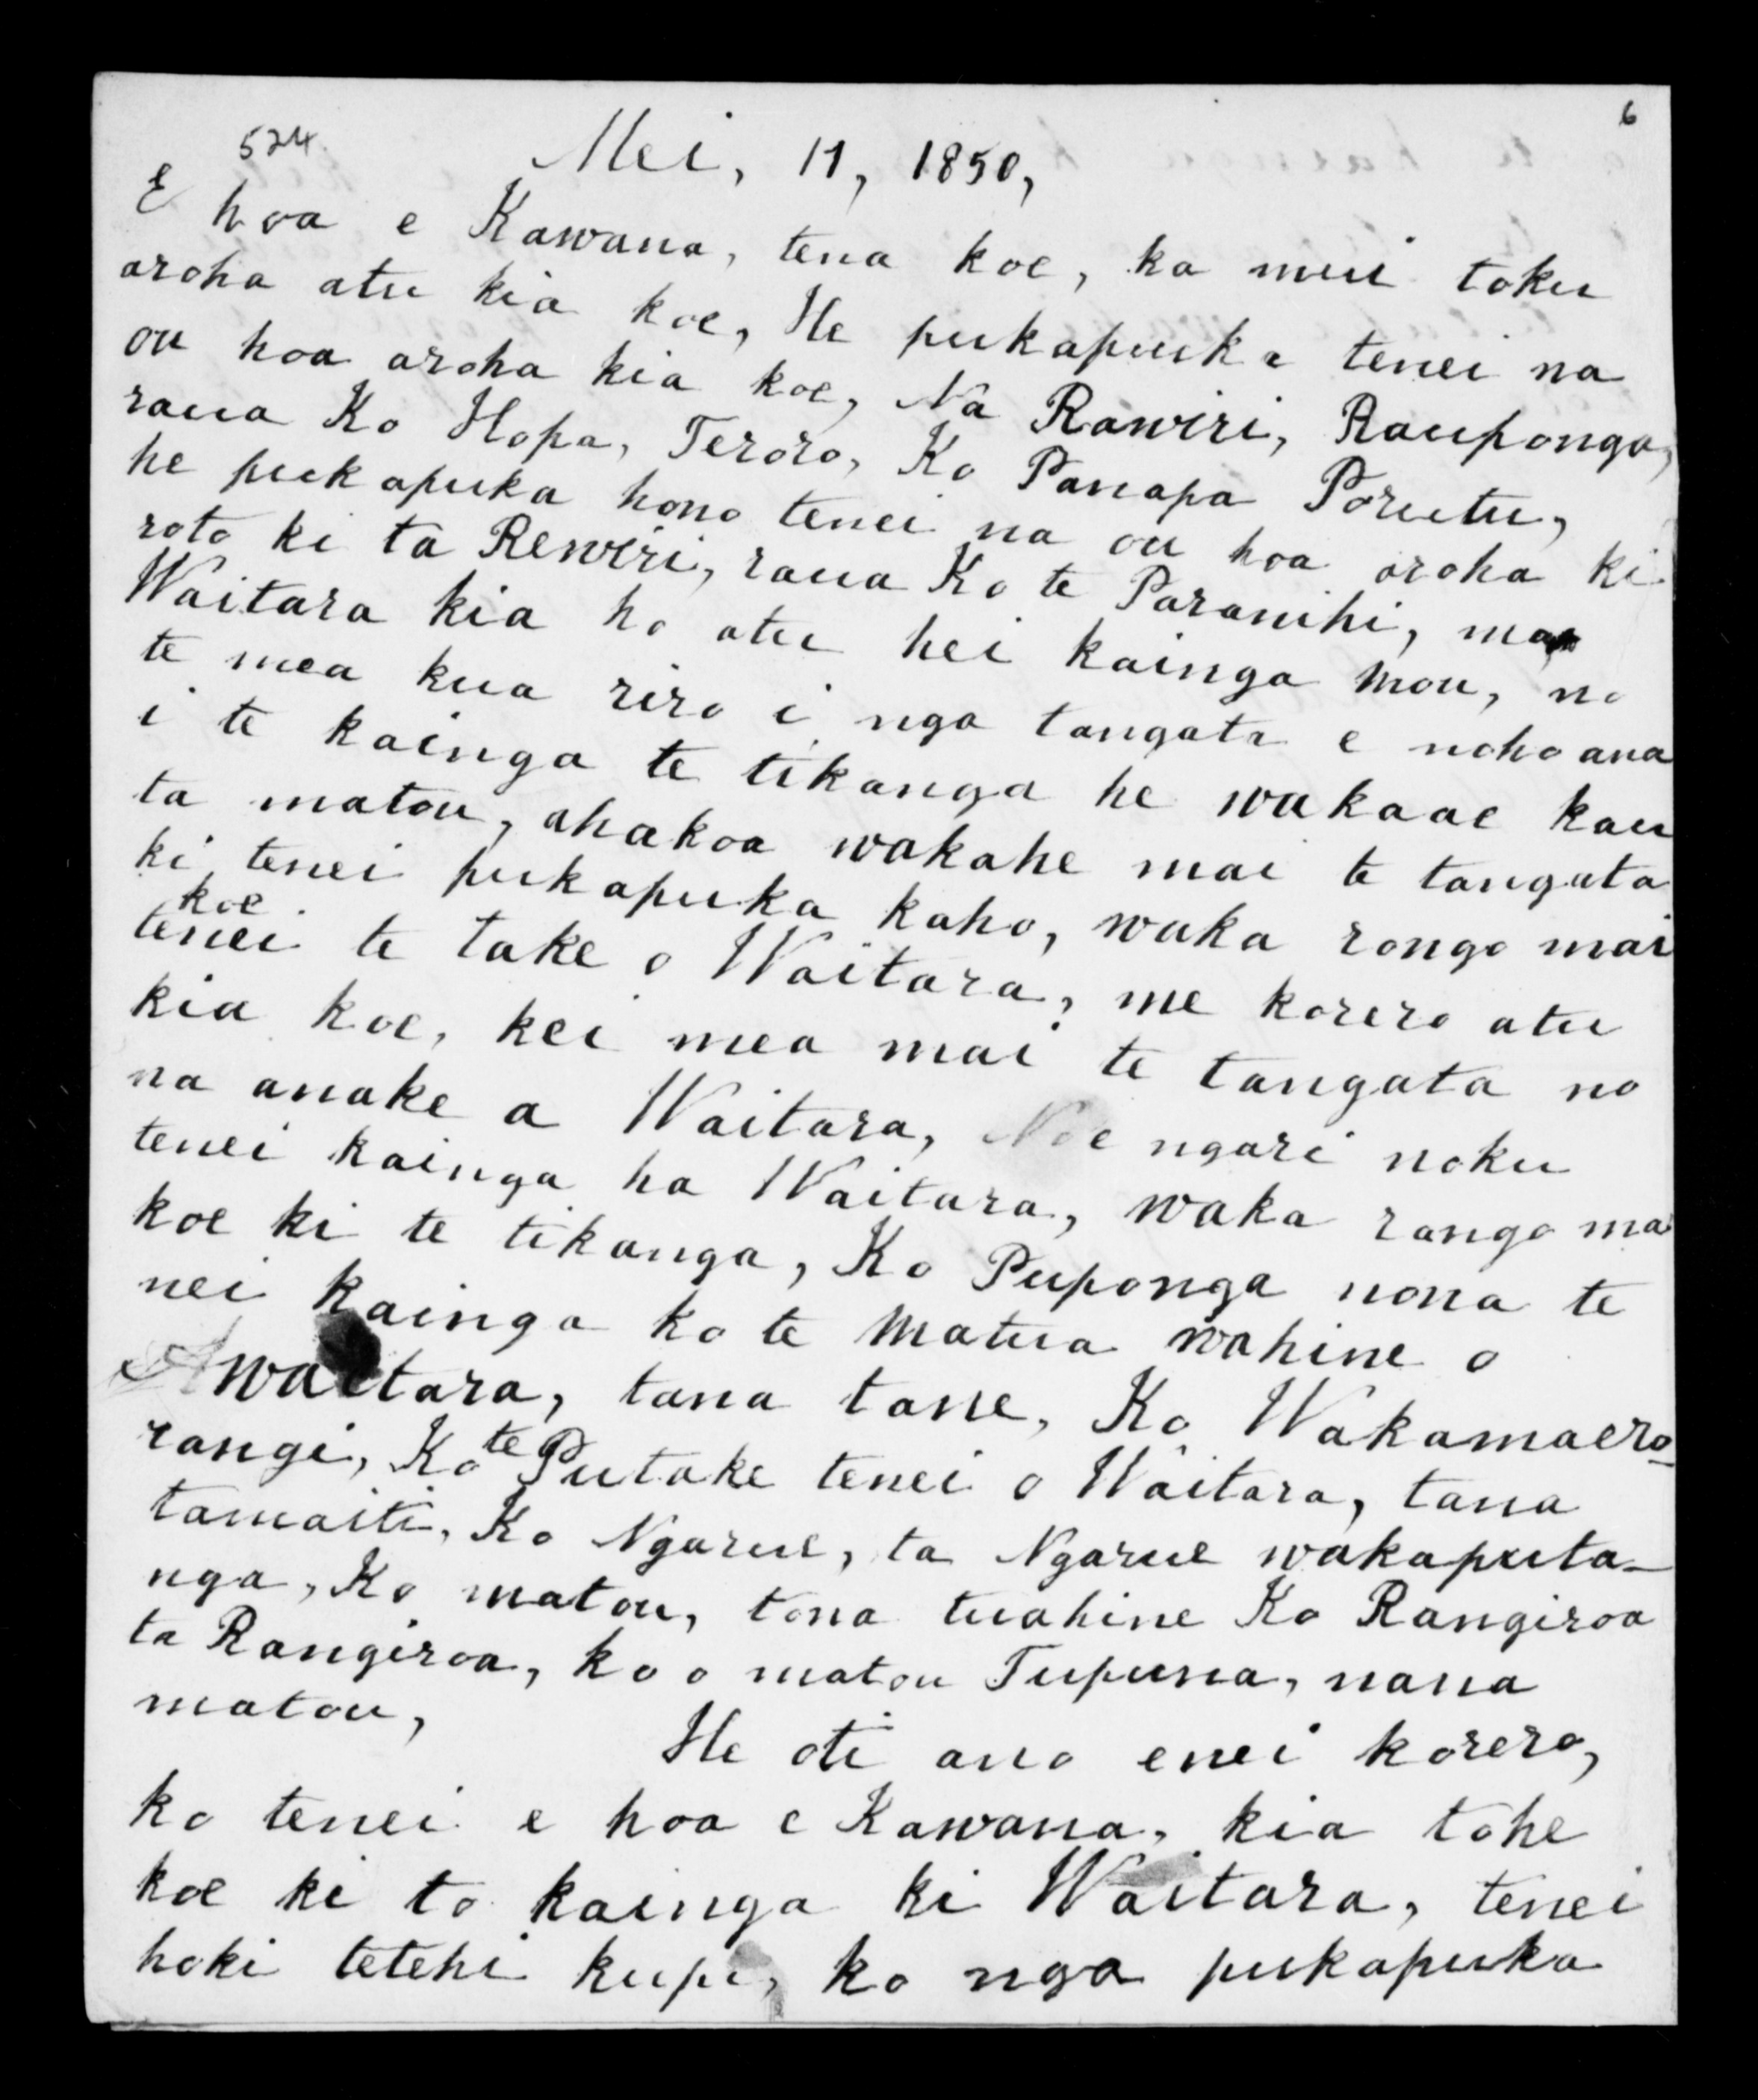 6
524
Mei, 11, 1850,
E hoa e Kawana, tena koe, ka nui toku
aroha atu kia koe, He pukapuka tenei na
ou hoa aroha kia koe, Na Rawiri, Rauponga,
raua Ko Hopa, Teroro, Ko Panapa Porutu,
he pukapuka hono tenei na ou hoa aroha ki
roto ki ta Rewiri, raua Ko te Paranihi, mo
Waitara kia ho atu hei kainga mou, no
te mea kua riro i nga tangata e noho ana
i te kainga te tikanga he wakaae kau
ta matou, ahakoa wakahe mai te tangata
ki tenei pukapuka kaho, waka rongo mai
koe
tenei te take o Waitara, me korero atu
kia koe, kei mea mai te tangata no
na anake a Waitara, Noe ngari noku
tenei kainga ha Waitara, waka rango ma
koe ki te tikanga, Ko Puponga nona te
nei kainga ko te matua wahine o
Awaitara, tana tane, Ko Wakamaero-
rangi, Ko te Putake tenei o Waitara, tana
tamaiti, Ko Ngarue, ta Ngarue wakaputa-
nga, Ko matou, tona tuahine Ko Rangiroa
ta Rangiroa, ko o matou Tupuna, nana
matou,
He oti ano enei korero,
ko tenei e hoa e Kawana, kia tohe
koe ki to kainga ki Waitara, tenei
hoki tetehi kupu, ko nga pukapuka